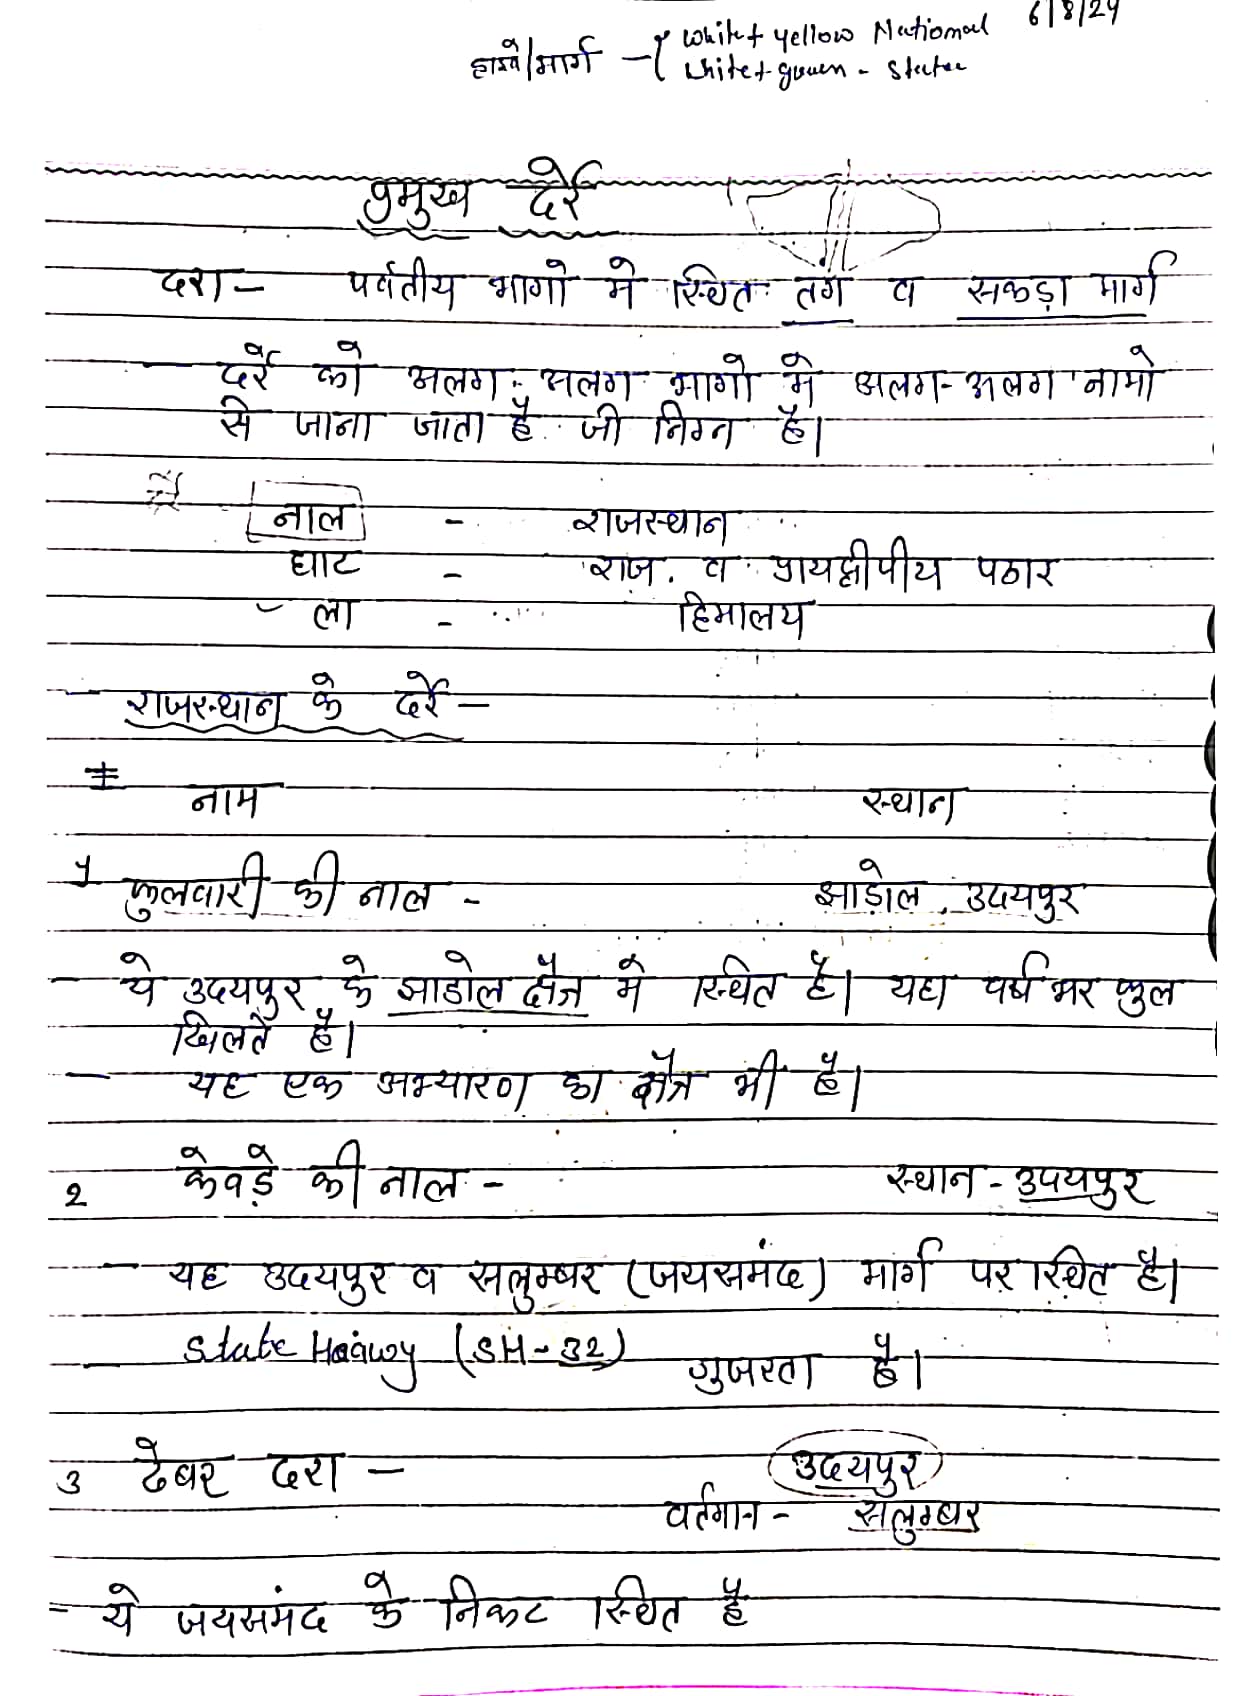 6/8/24
हाइवे/मार्ग - { white + yellow National
white + green - State
प्रमुख दर्रे
दर्रा - पर्वतीय भागो मे स्थित तंग व सकड़ा मार्ग
- दर्रे को अलग-अलग भागो मे अलग-अलग नामो
से जाना जाता है जो निम्न है।
नाल - राजस्थान
घाट - राज. व प्रायद्वीपीय पठार
- ला - हिमालय
- राजस्थान के दर्रे -
नाम स्थान
1 फुलवारी की नाल - झाडोल, उदयपुर
- ये उदयपुर के झाडोल क्षेत्र मे स्थित है। यहा वर्ष भर फुल
खिलते है।
- यह एक अभ्यारण का क्षेत्र भी है।
2 केवड़े की नाल - स्थान - उदयपुर
- यह उदयपुर व सलुम्बर (जयसमंद) मार्ग पर स्थित है।
- State Haiwy (SH-32) गुजरता है।
3 ढेबर दर्रा - उदयपुर
वर्तमान - सलुम्बर
- ये जयसमंद के निकट स्थित है